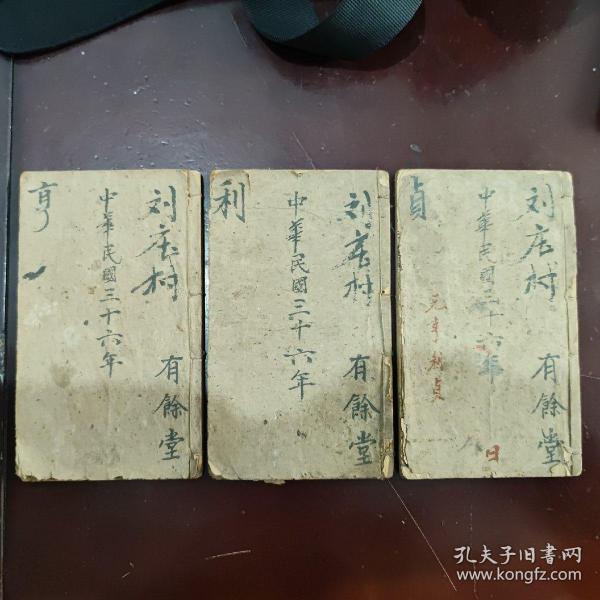 刘店村 有餘堂
中華民國三十六年
亨
刘店村 有餘堂
中華民國三十六年
利
刘店村 有餘堂
中華民國三十六年
元亨利貞
貞
八日
孔夫子旧书网
www.kongfz.com